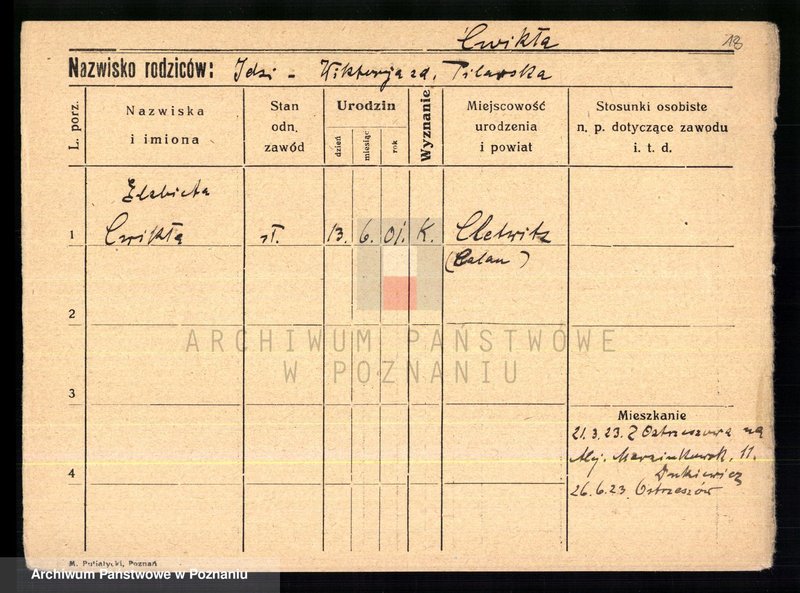 Cwikła
18
Nazwisko rodziców: Idzi – Wiktorja zd.
L. porz.
Nazwiska i imiona
Stan odn. zawód
Urodzin
dzień
miesiąc
rok
Wyznanie
Miejscowość urodzenia i powiat
Stosunki osobiste n. p. dotyczące zawodu i. t. d.
Elzbieta
1 Cwikła sł. 13. 6. 01. K. Cletwitz
(Calau)
2
ARCHIWUM PAŃSTWOWE
W POZNANIU
3
Mieszkanie
21.3.23. Z Ostrzeszowa na
Alej. Marcinkowsk. 11.
4
26.6.23 Ostrzeszów
M. Putiatycki, Poznań
Archiwum Państwowe w Poznaniu